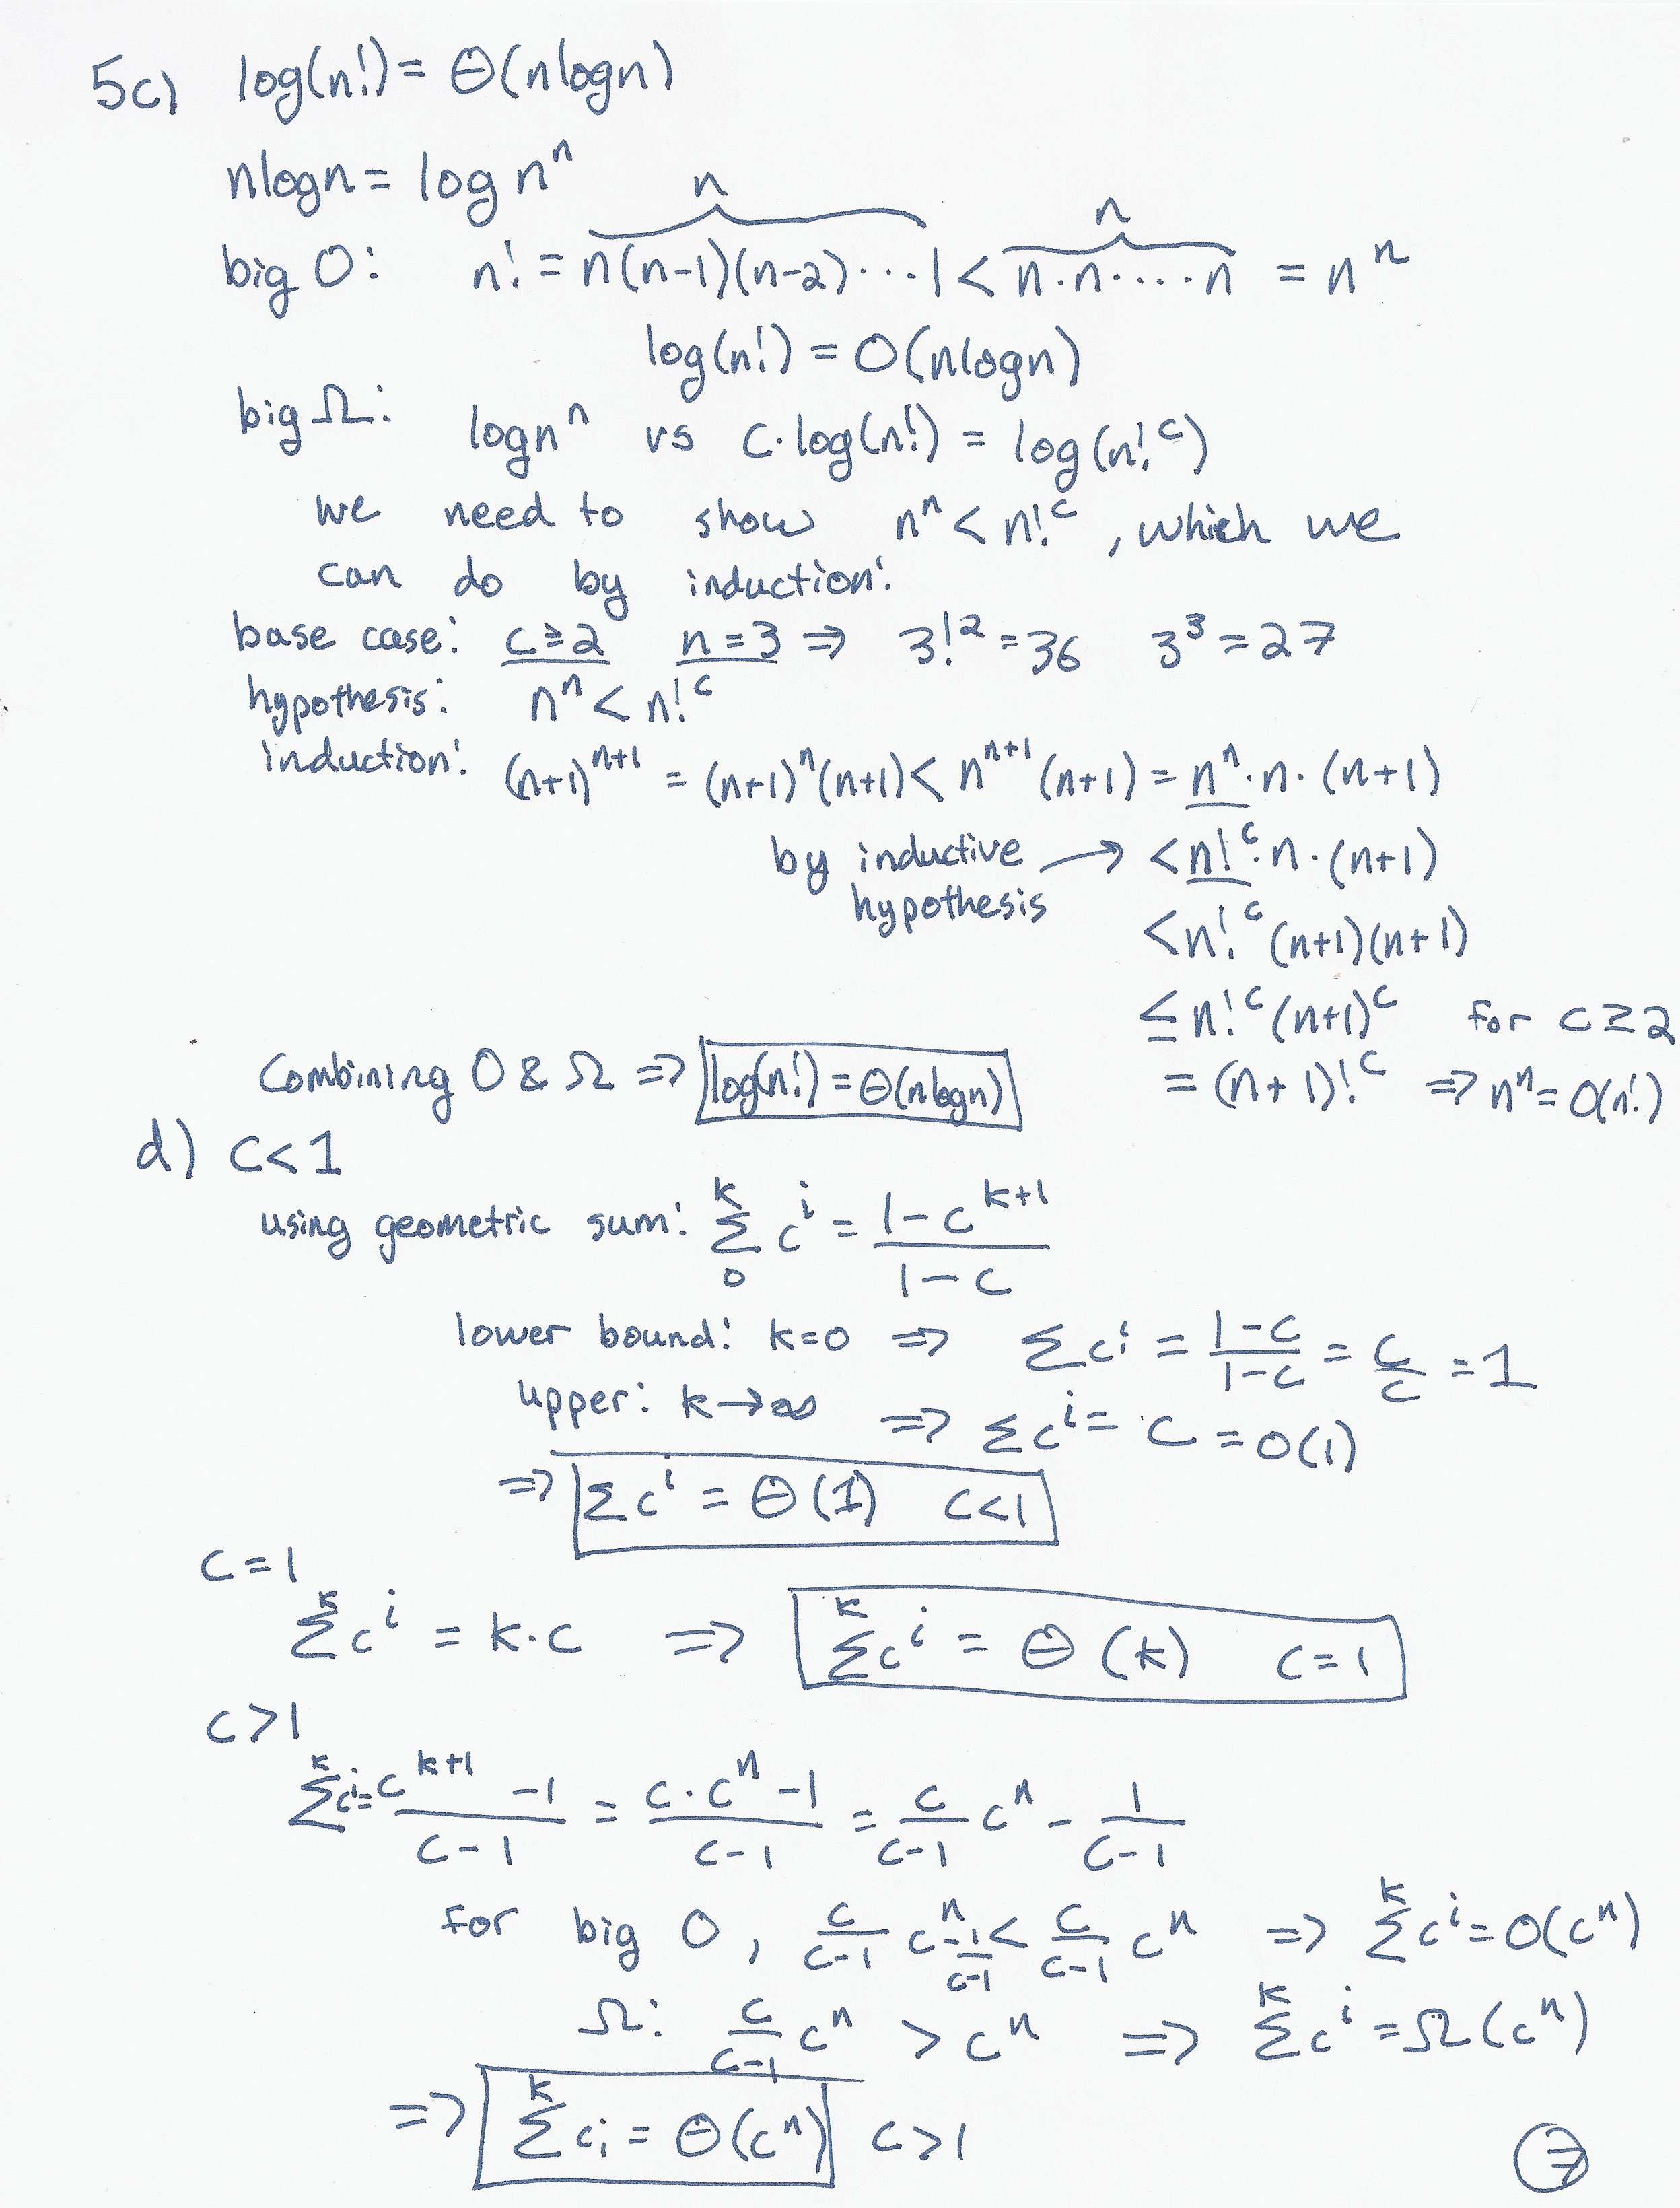 5c) log(n!) = Θ(nlogn)
nlogn = log n^n
n n
big O: n! = n(n-1)(n-2)···1 < n·n·...·n = n^n
log(n!) = O(nlogn)
big Ω: logn^n vs c·log(n!) = log(n!^c)
we need to show n^n < n!^c, which we
can do by induction:
base case: c≥2 n=3 ⇒ 3!^2 = 36 3^3 = 27
hypothesis: n^n < n!^c
induction: (n+1)^(n+1) = (n+1)^n(n+1) < n^(n+1)(n+1) = n^n·n·(n+1)
by inductive hypothesis → < n!^c·n·(n+1)
< n!^c(n+1)(n+1)
≤ n!^c(n+1)^c for c≥2
= (n+1)!^c ⇒ n^n = O(n!)
Combining O & Ω ⇒ log(n!) = Θ(nlogn)
d) c<1
using geometric sum: Σ_0^k c^i = (1-c^(k+1))/(1-c)
lower bound: k=0 ⇒ Σc^i = (1-c)/(1-c) = c/c = 1
upper: k→∞ ⇒ Σc^i = c = O(1)
⇒ Σc^i = Θ(1) c<1
c=1
Σ^k c^i = k·c ⇒ Σ^k c^i = Θ(k) c=1
c>1
Σ^k c^i = (c^(k+1) -1)/(c-1) = (c·c^n -1)/(c-1) = c/(c-1) c^n - 1/(c-1)
for big O, c/(c-1) c^n - 1/(c-1) < c/(c-1) c^n ⇒ Σ^k c^i = O(c^n)
Ω: c/(c-1) c^n > c^n ⇒ Σ^k c^i = Ω(c^n)
⇒ Σ^k c_i = Θ(c^n) c>1
7